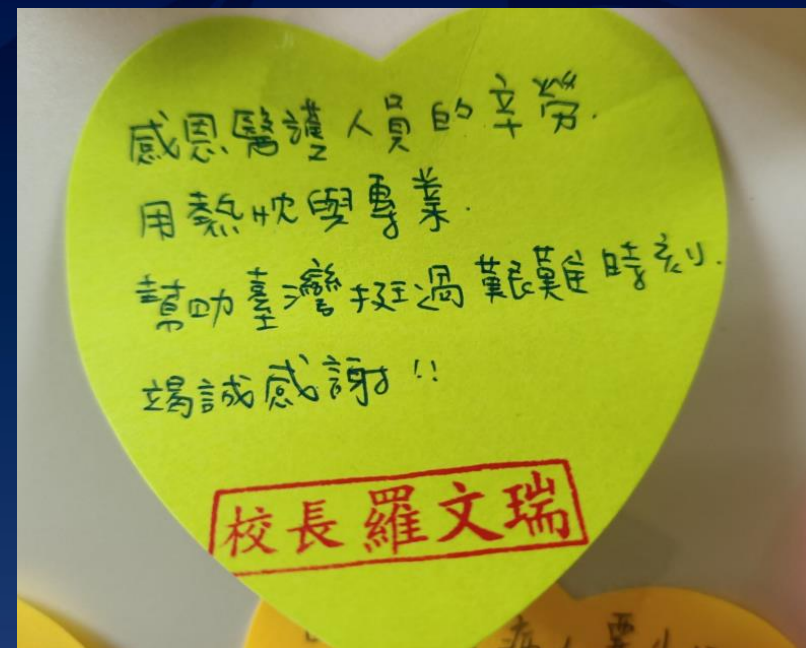 感恩醫護人員的辛勞.
用熱忱與專業.
幫助臺灣挺過艱難時刻.
竭誠感謝!!
校長羅文瑞